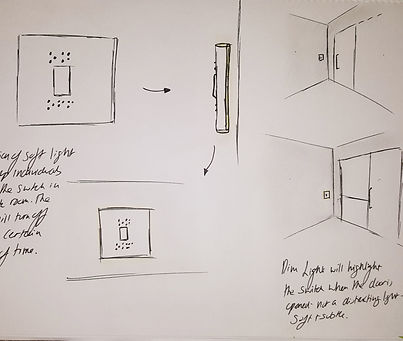 of soft light
individuals
the switch in
room. The
will turn off
certain
of time.
Dim Light will highlight
the switch when the door is
opened - not a distracting light -
Soft + subtle.